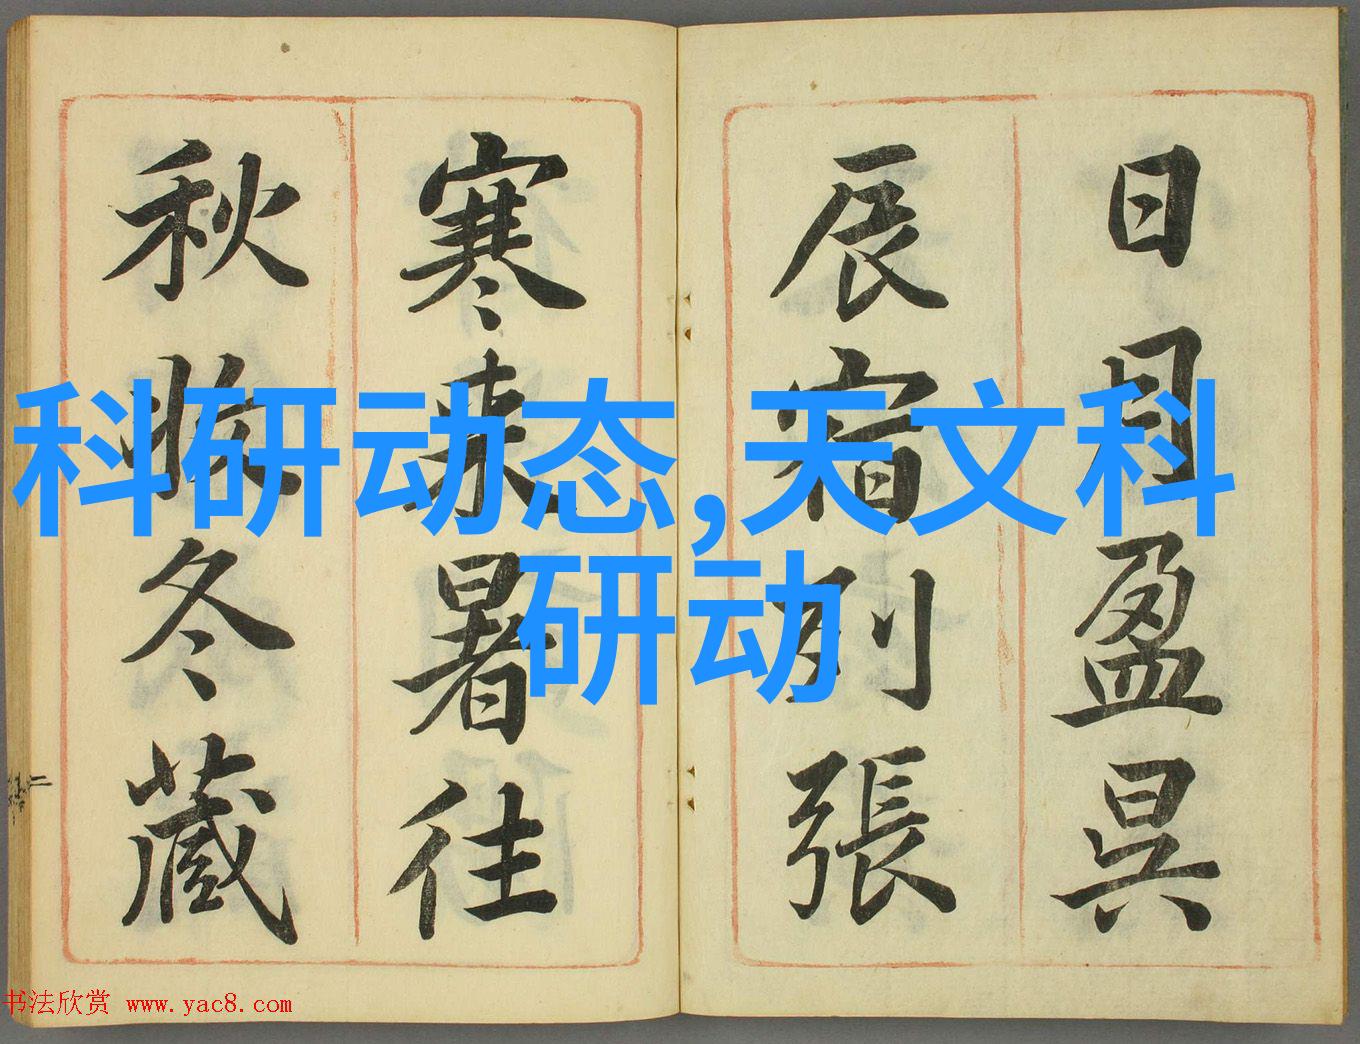 日月盈昃
辰宿列張
寒来暑往
秋收冬藏
科研动态,天文科
研动
书法欣赏 www.yac8.com